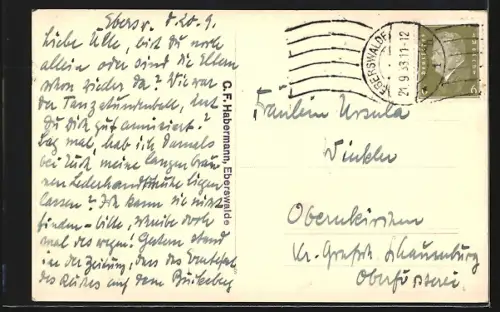 Ebersw. d. 20. 9.
Liebe Ulle, bist Du noch
allein oder sind die Eltern
schon wieder da? Wie war
der Tanzstundenball, hast
Du Dich gut amüsiert?
Sag mal, hab ich damals
bei Euch meine langen brau-
nen Lederhandschuhe liegen
lassen? Ich kann sie nicht
finden – bitte, schreibe doch
mal des wegen! Gestern stand
in der Zeitung, dass das
des Reiches auf dem Bückeberg
C. F. Habermann, Eberswalde
EBERSWALDE
21.9.33.11-12
DEUTSCHES REICH
6
Fräulein Ursula
Winkler
Obernkirchen
Kr. Grafsch. Schaumburg
Oberförsterei